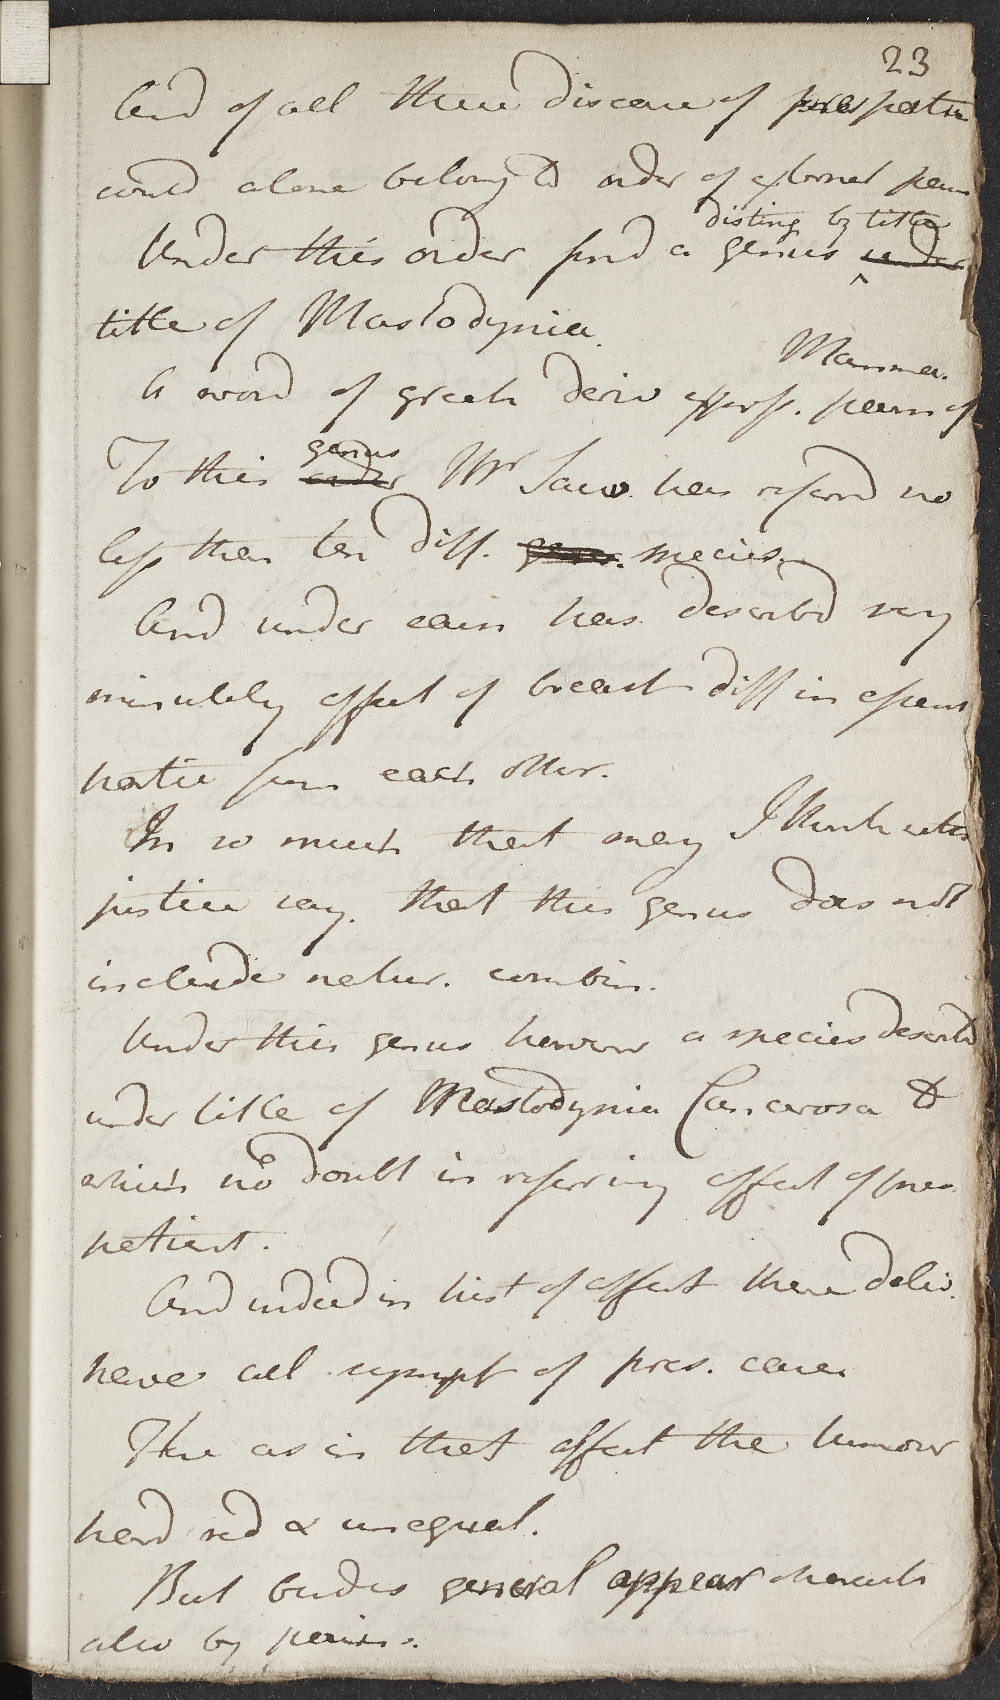 23
And of all these disease of pres patin
could alone belong to order of external pain
disting by title
Under this order find a genus under
title of Mastodynia.
Mamma.
A word of greek deriv express. pain of
genus
To this order Mr Sauv. has referrd no
less than ten diff. genus. species.
And under each has describd very
minutely affect of breast diff in essent
partic from each other.
In so much that may I think with
justice say. that this genus does not
include natur. combin.
Under this genus however a species describd
under title of Mastodynia Cancerosa to
which no doubt in referring affect of pres
patient.
And indeed in hist of affect there deliv.
have all sympt of pres. case.
Here as in that affect the tumour
hard red & unequal.
But besides general appear charact
also by pains.